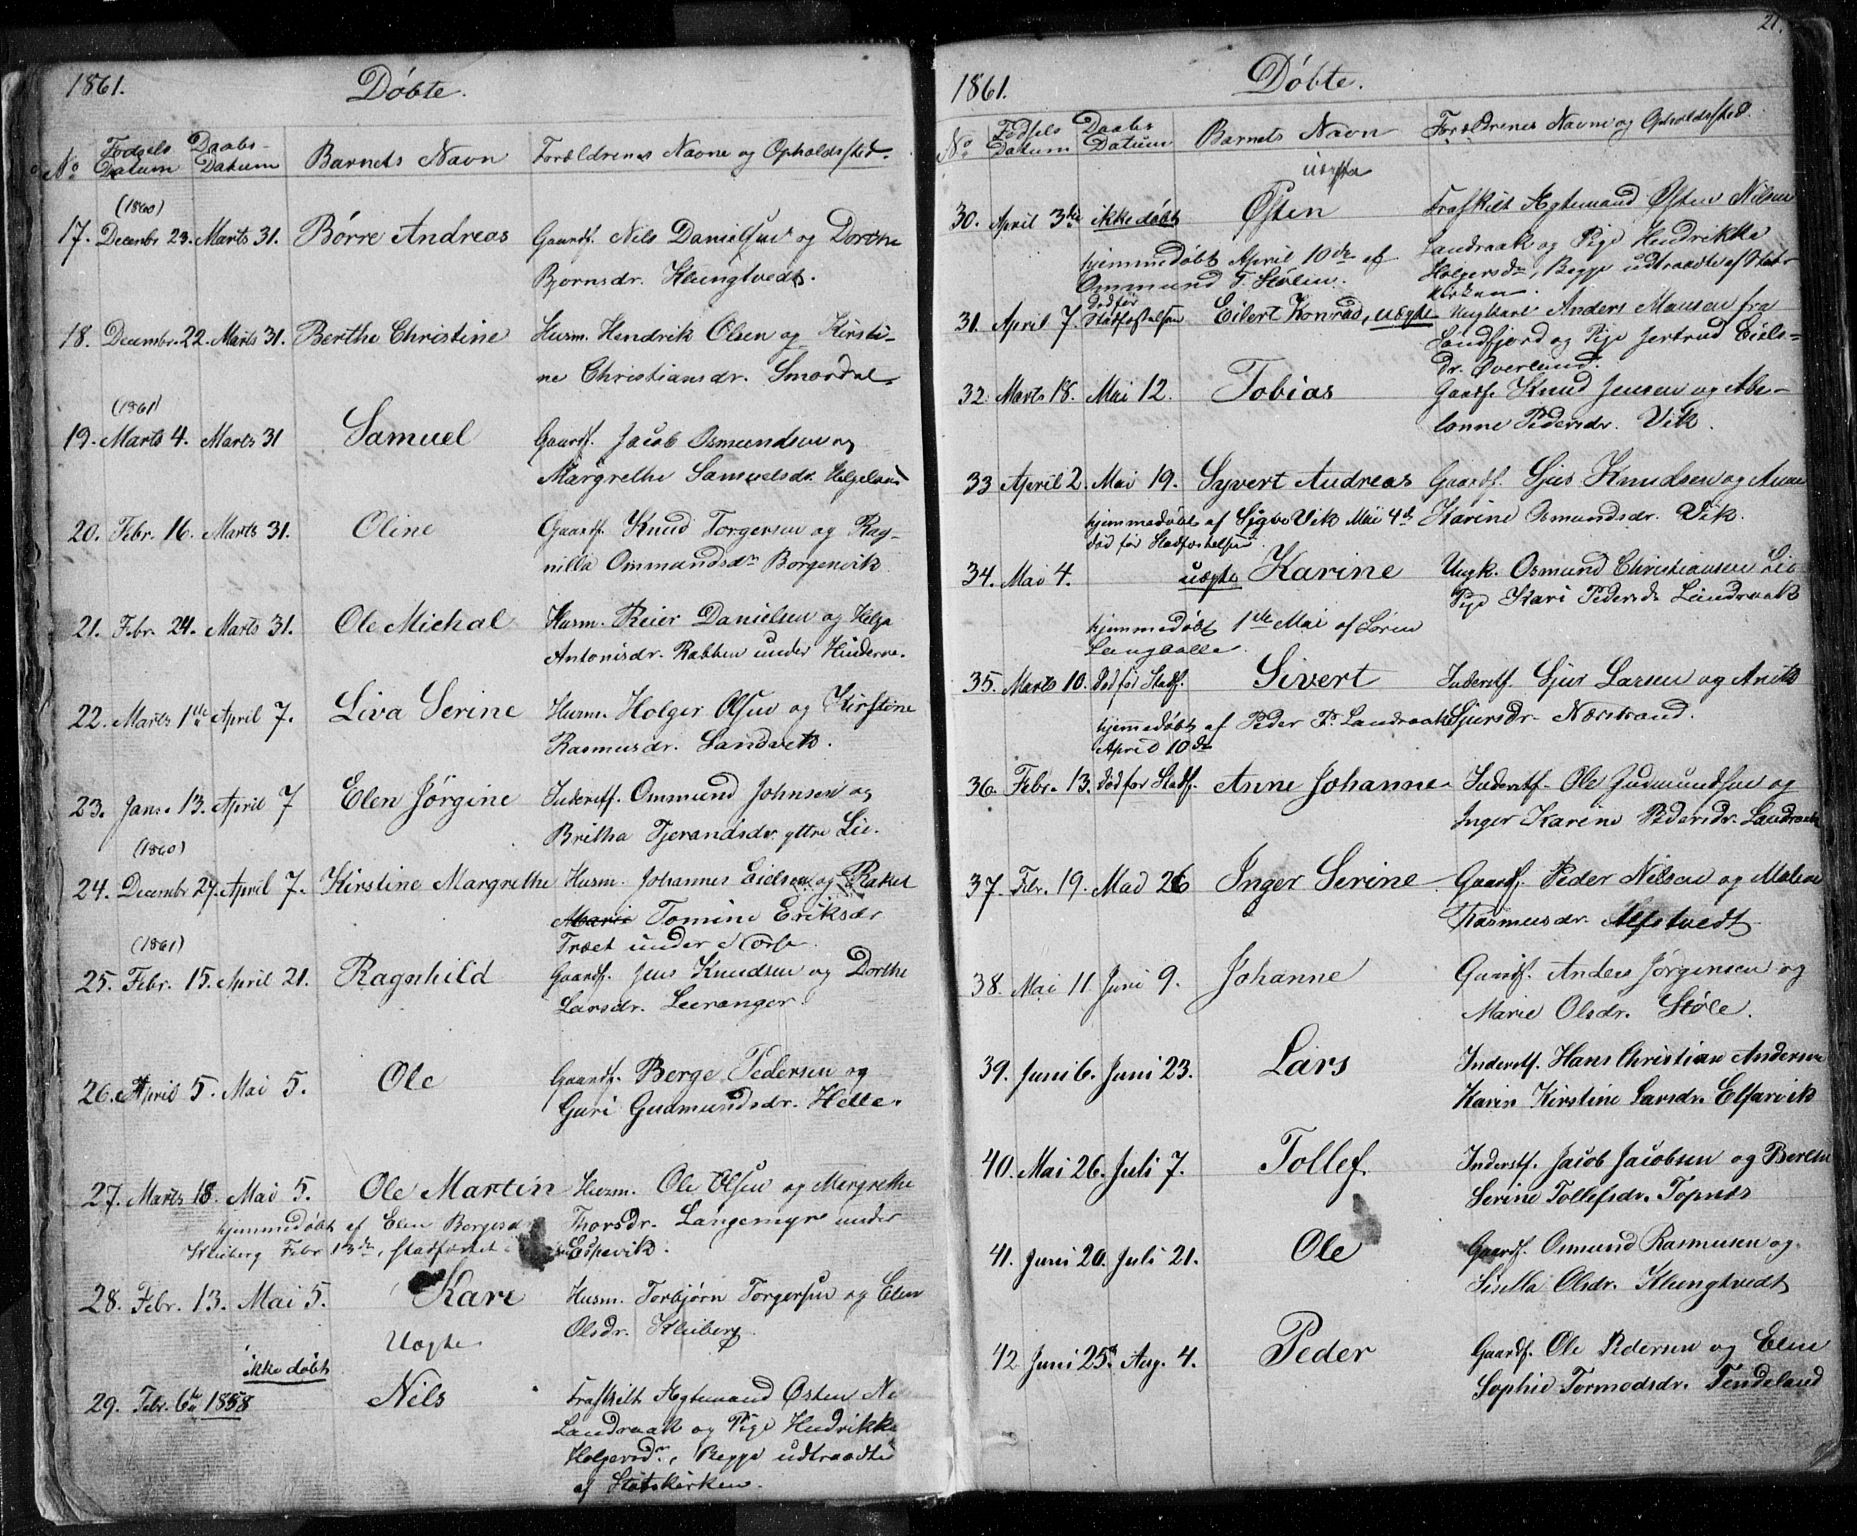 1861. Døbte.
No Fødsels Datum Daabs-Datum Barnets Navn Forældrenes Navne og Opholdssted.
(1860)
17. Decembr 23. Marts 31. Børre Andreas Gaardf. Nils Danielsen og Dorthe
Bjornsdr. Klungtvedt.
18. Decembr. 22. Marts 31. Berthe Christine Husm. Hendrik Olsen og Kirsti-
ne Christiansdr. Smørdal
(1861)
19. Marts 4. Marts 31 Samuel Gaardf. Jacob Osmundsen og
Margrethe Samuelsdr. Helgeland
20. Febr. 16. Marts 31. Oline Gaardf. Knud Torgersen og Rag-
nilla Ommundsdr Borgenvik
21. Febr. 24. Marts 31. Ole Michal Husm. Reier Danielsen og Helga
Antonisdr. Rabben under Hinderne.
22. Marts 1ste April 7. Liva Serine Husm. Holger Olsen og Kirstine
Rasmusdr. Sandvik.
23. Janr. 13. April 7 Elen Jørgine Inderstf. Ommund Johnsen og
Britha Tjerandsdr. yttre Lie.
(1860)
24. Decembr 27. April 7. Kirstine Margrethe Husm. Johannes Eidsen og Rakel
Tomine Eriksdr
Træet under
(1861)
25. Febr. 15. April 21. Ragnhild Gaardf. Jens Knudsen og Dorthe
Larsdr. Leeranger
26. April 5. Mai 5. Ole Gaardf. Berge Pedersen og
Guri Gudmundsdr. Helle.
27. Marts 18. Mai 5. Ole Martin Husm. Ole Olsen og Mergrethe
hjemmedøbt af Elen Borgesd Thorsdr. Langemyr under
Kleiberg Febr 13de, stadfæstet Espevik.
28. Febr. 13. Mai 5. Kari Husm. Torbjørn Torgersen og Elen
Olsdr. Kleiberg.
Uægte
ikke døbt
29. Febr. 6te 1858 Nils Fraskilt Ægtemand Østen
Landraak og Pige Hendrikke
Holgersdr., Begge udtraadte
af Statskirken.
21.
1861. Døbte.
No Fødsels Datum Daabs Datum Barnets Navn Forældrenes Navne og Opholdssted.
uægte
30. April 3die ikke døbt Østen Fraskilt Ægtemand Østen Nilsen
hjemmedøbt April 10de af Landraak og Pige Hendrikke
Ommund T. Stølen. Holgersdr, Begge udtraadte af Stats-
kirken.
død før
31. April 7. Stadfæstelsen Eilert Konrad, uægte Ungkarl Anders Monsen fra
Sundfjord og Pige Jertrud Eiels-
dr. Øverland.
32. Marts 18. Mai 12. Tobias Gaardf. Knud Jensen og Abe-
lonne Pedersdr. Vik.
33 April 2. Mai 19. Syvert Andreas Gaardf. Sjur Knudsen og Anne
hjemmedøbt af Sigbo Vik Mai 4de Karine Osmundsdr. Vik.
død før Stadfæstelsen
34. Mai 4. uægte Karine Ungk. Osmund Christiansen Lie
Pige Kari Pedersdr Landraak
hjemmedøbt 1ste Mai af Søren
Langballe
35. Marts 10. død før Stadf. Sivert Inderstf. Sjur Larsen og Anita
hjemmedøbt af Peder P. Landraak Sjursdr. Nærstrand.
April 10de
36. Febr. 13. død før Stadf. Anne Johanne Inderstf. Ole Gudmundsen og
Inger Karine Pedersdr. Landraak
37. Febr. 19. Mad 26 Inger Serine Gaardf. Peder Nilsen og Malene
Rasmusdr. Alfstvedt
38. Mai 11. Juni 9. Johanne Gaardf. Anders Jørgensen og
Marie Olsdr. Støle.
39. Juni 6. Juni 23. Lars Inderstf. Hans Christian Andersen
Karin Kirstine Larsdr. Elfarvik
40. Mai 26. Juli 7. Tollef. Inderstf. Jacob Jacobsen og Berthe
Serine Tollefsdr. Topnæs
41. Juni 20. Juli 21. Ole Gaardf. Osmund Rasmusen og
Sisella Olsdr. Klungtvedt
42 Juni 25. Aug. 4. Peder Gaardf. Ole Pedersen og Elen
Sophie Tormodsdr. Tendeland